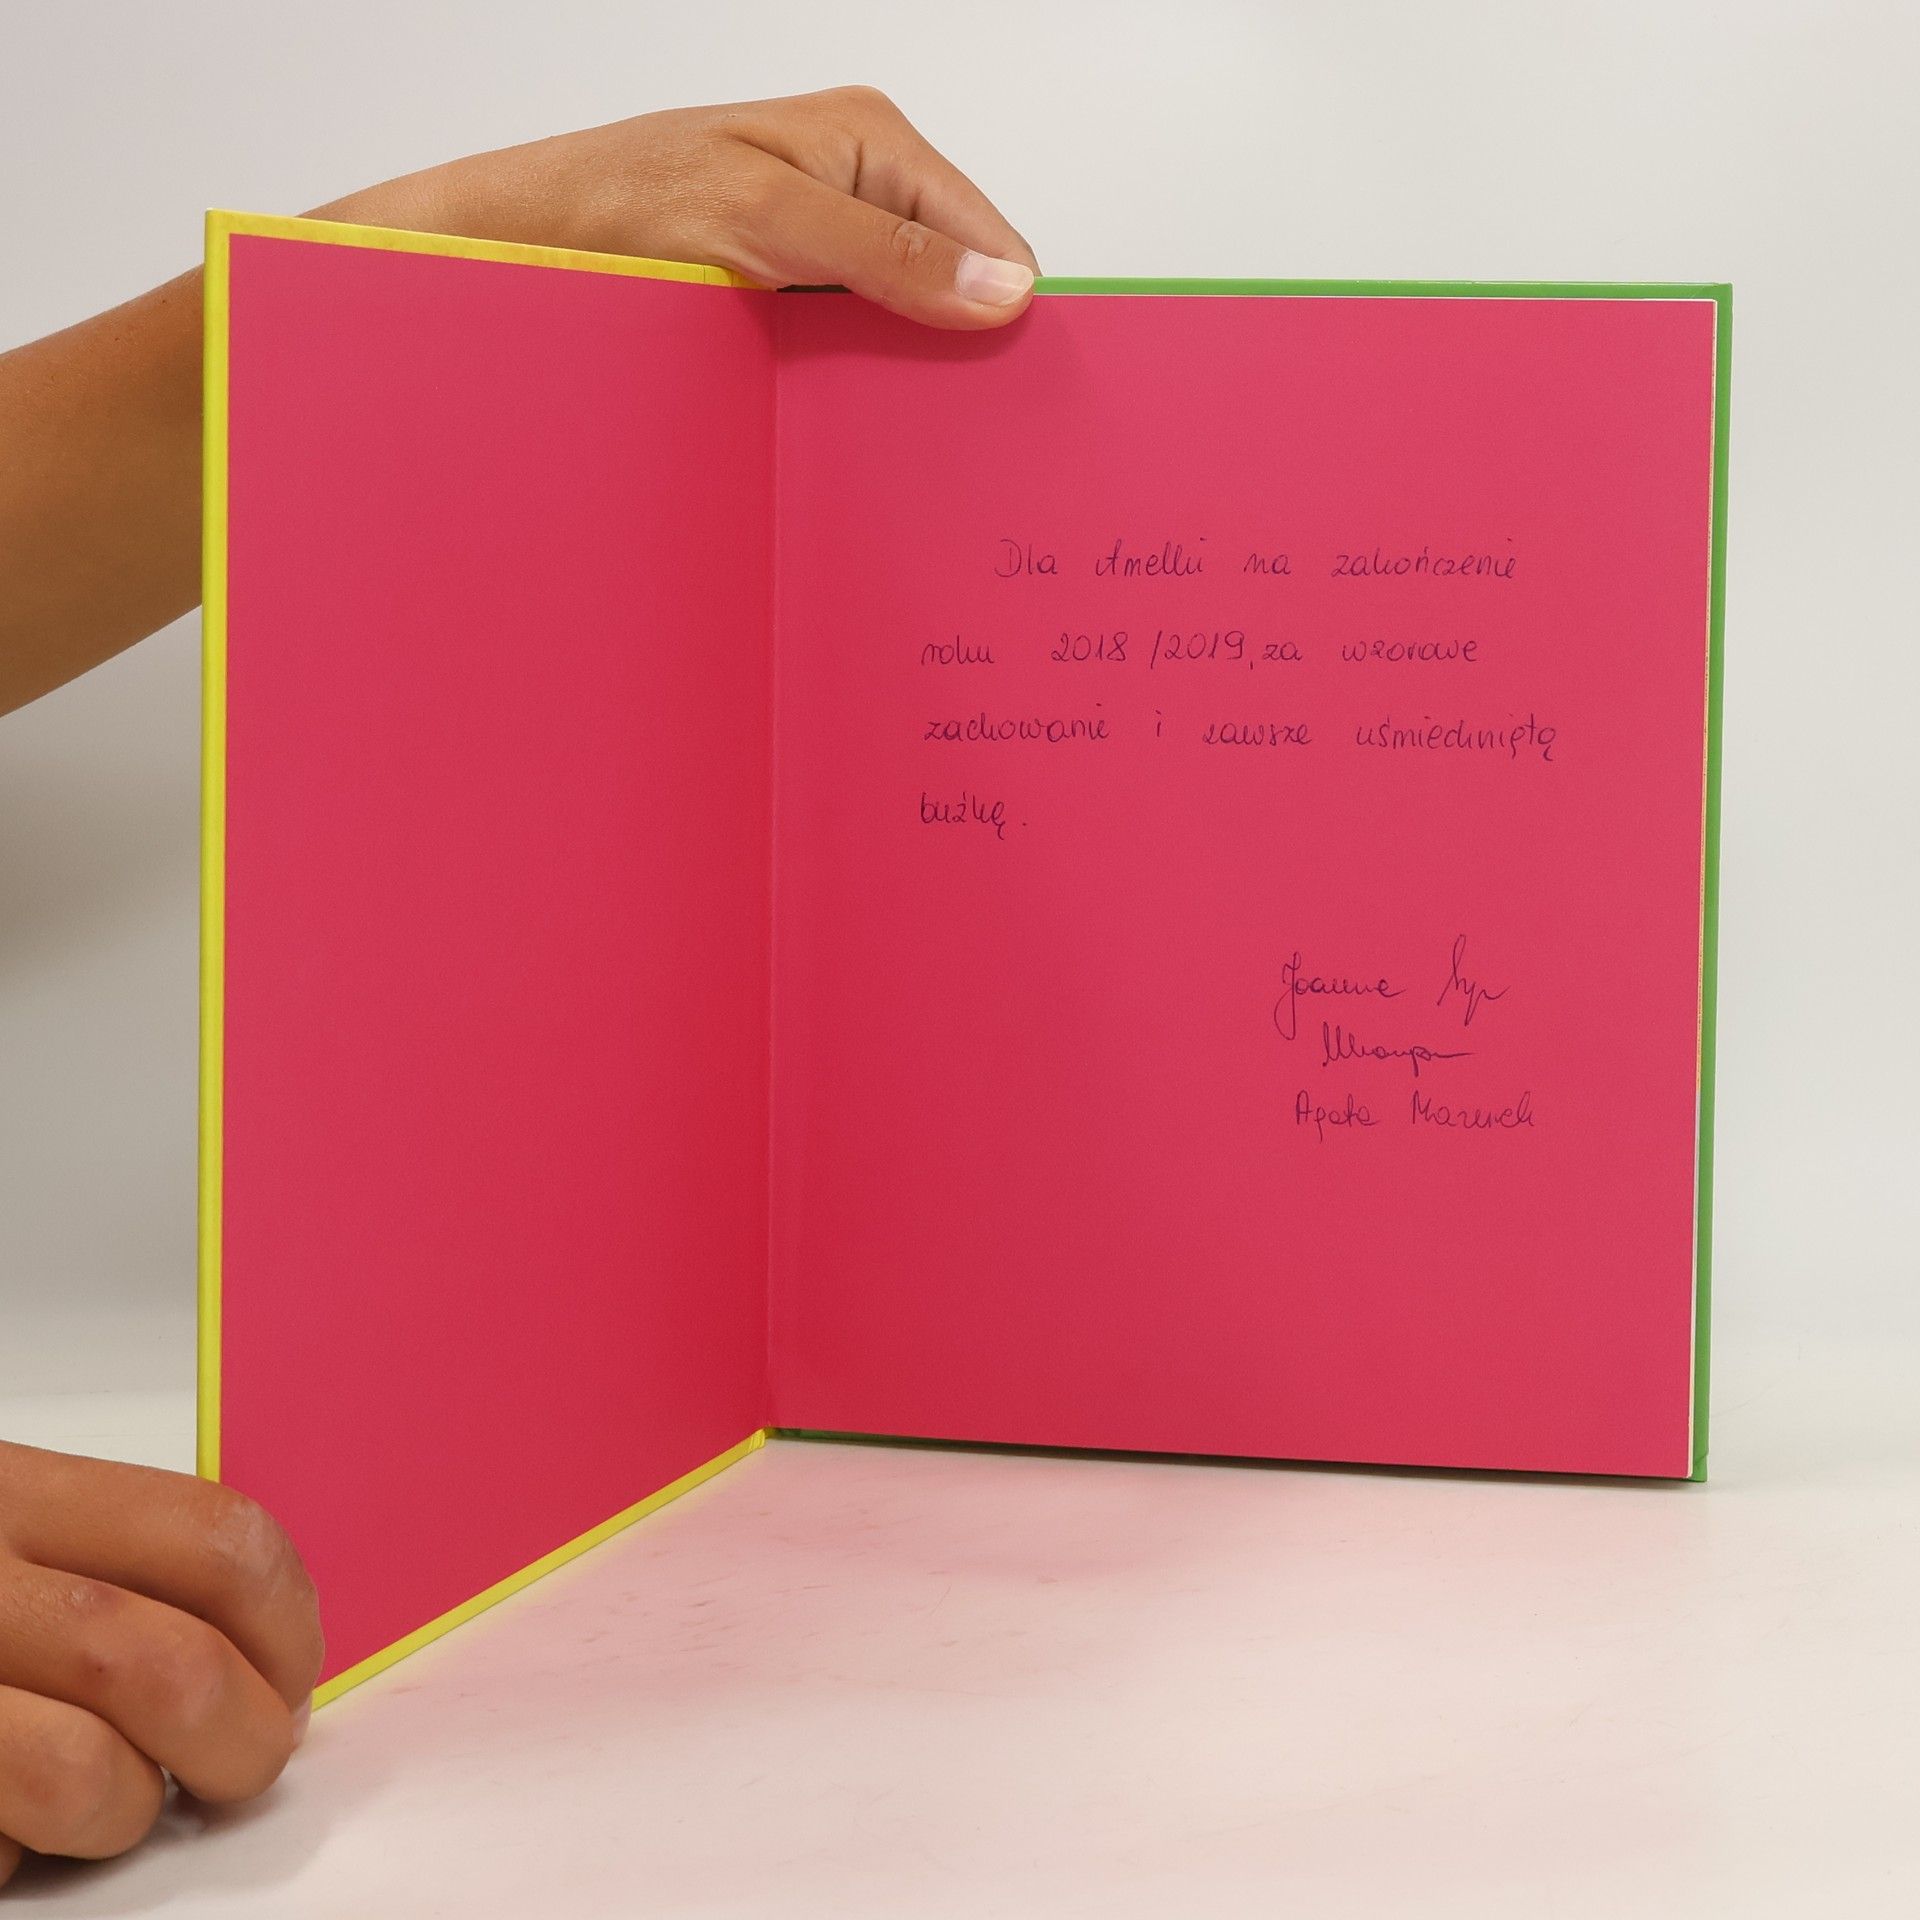 Dla Amelki na zakończenie
roku 2018/2019, za wzorowe
zachowanie i zawsze uśmiechniętą
buźkę.
Joanna
Agata Mazurek